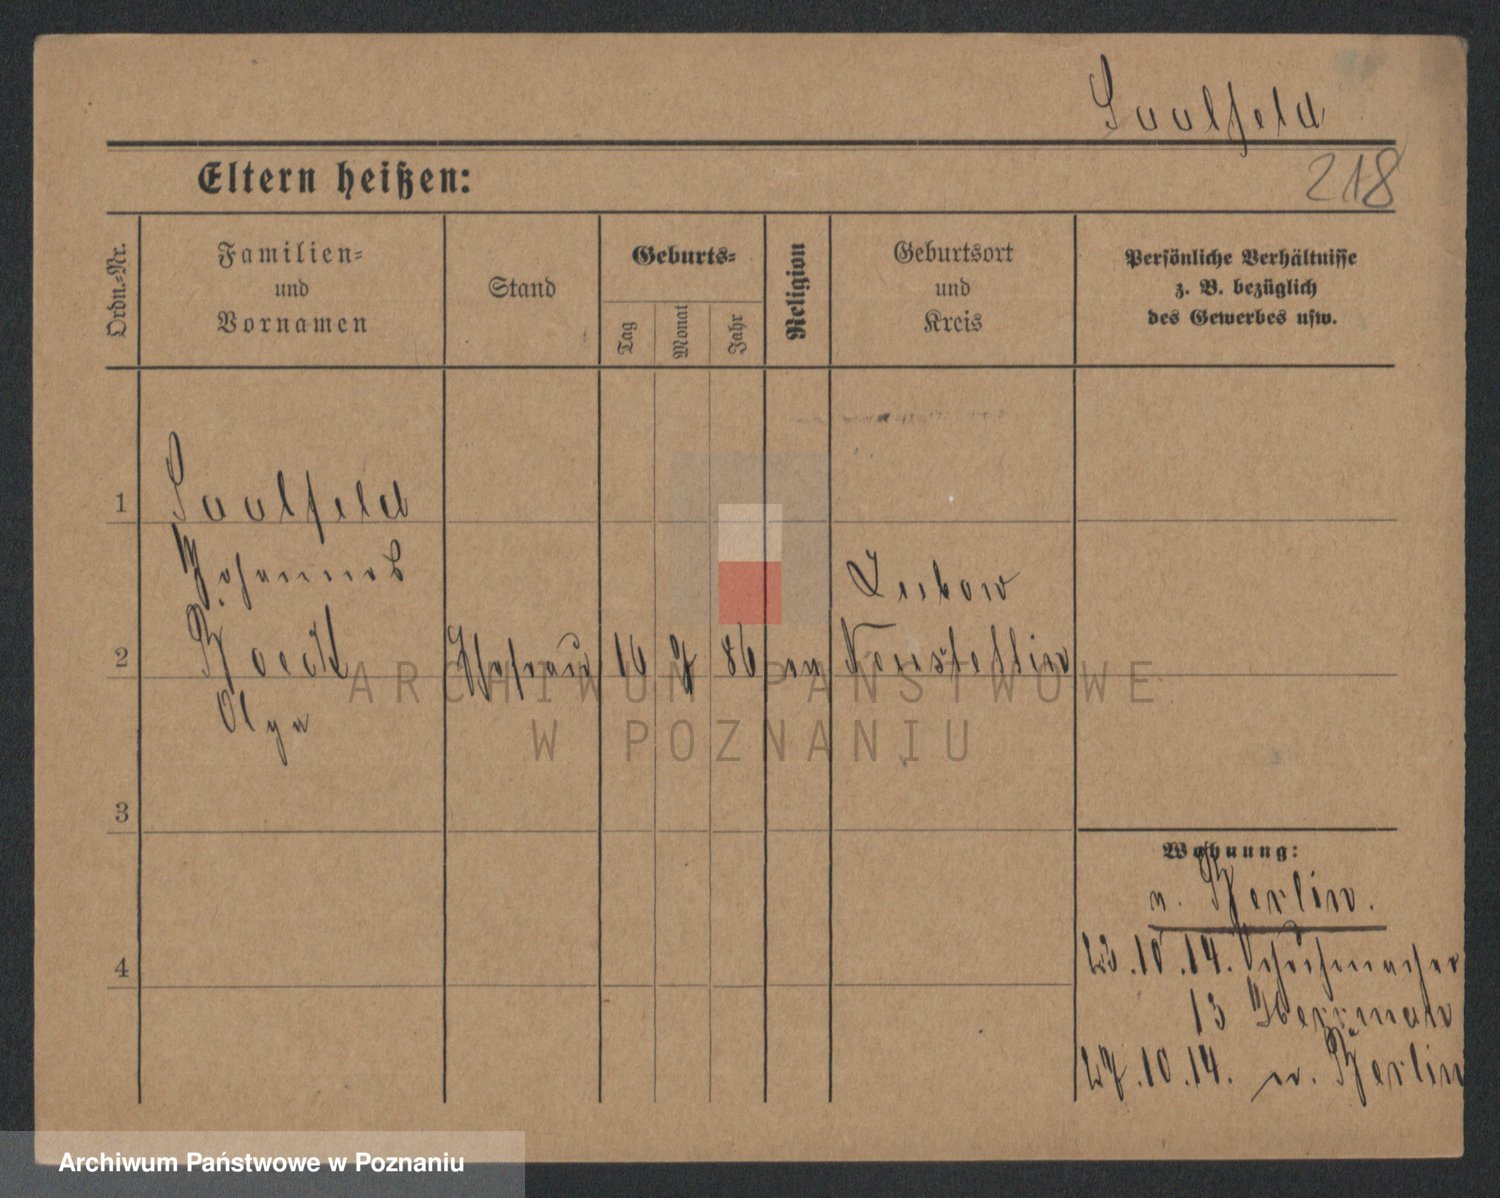 Saalfeld
Eltern heißen:
218
Ordn.-Nr.
Familien-
und
Vornamen
Stand
Geburts-
Tag
Monat
Jahr
Religion
Geburtsort
und
Kreis
Persönliche Verhältnisse
z. B. bezüglich
des Gewerbes usw.
1
Saalfeld
Johannes
2
Boeck
Olga
Ehefrau
16
7
86
ev
Lubow
Neustettin
3
4
Wohnung:
v. Berlin.
23.10.14. Schuhmacher
13 Herrmann
27.10.14. n. Berlin
ARCHIWUM PAŃSTWOWE
W POZNANIU
Archiwum Państwowe w Poznaniu